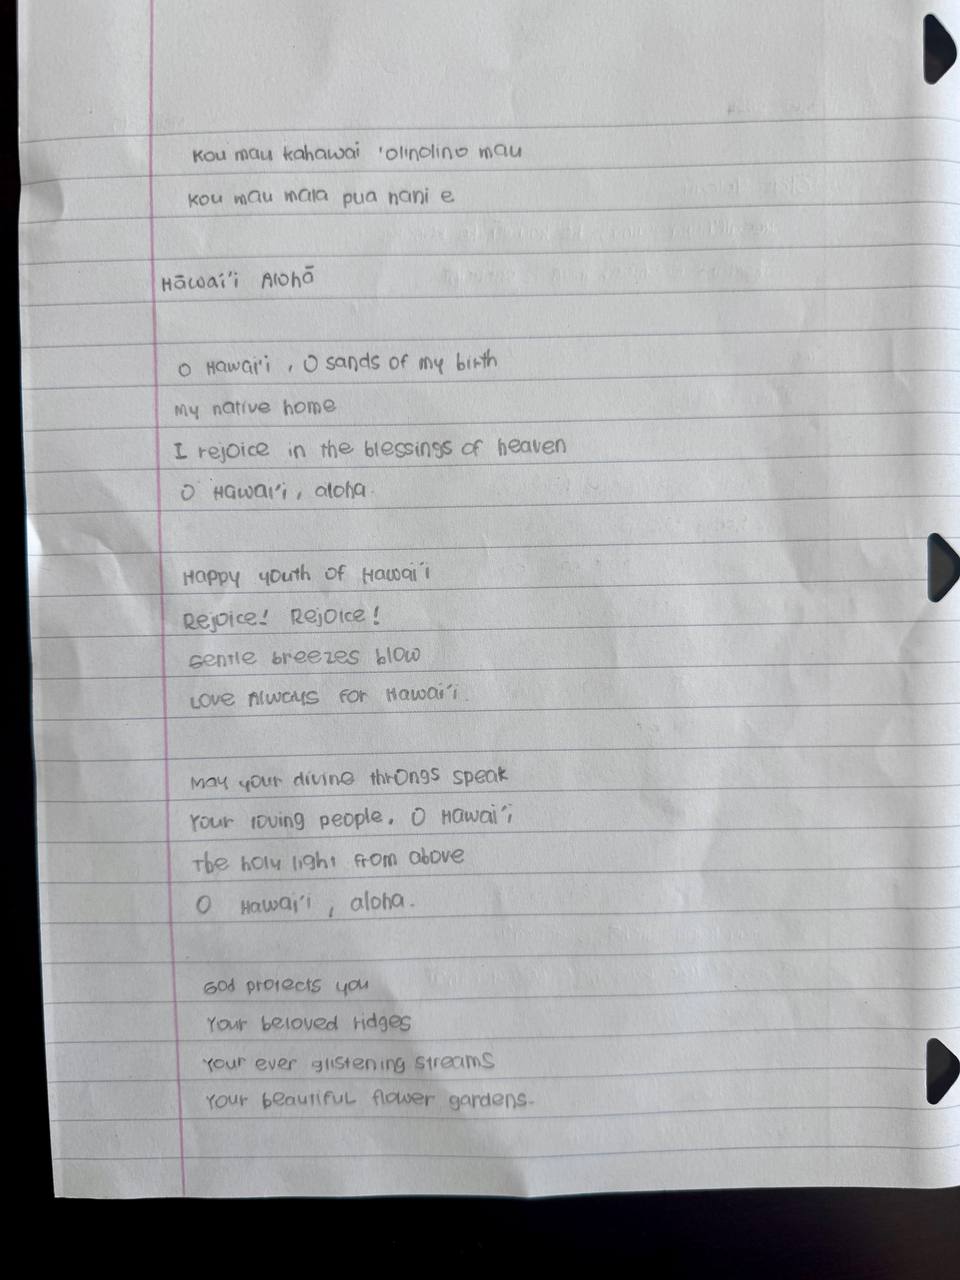 Kou mau kahawai 'olinolino mau
Kou mau mala pua nani e
Hāwai'i Alohā
O Hawai'i, O sands of my birth
My native home
I rejoice in the blessings of heaven
O Hawai'i, aloha.
Happy youth of Hawai'i
Rejoice! Rejoice!
Gentle breezes blow
Love Always for Hawai'i.
May your divine throngs speak
Your loving people, O Hawai'i
The holy light from above
O Hawai'i, aloha.
God protects you
Your beloved ridges
Your ever glistening streams
Your beautiful flower gardens.